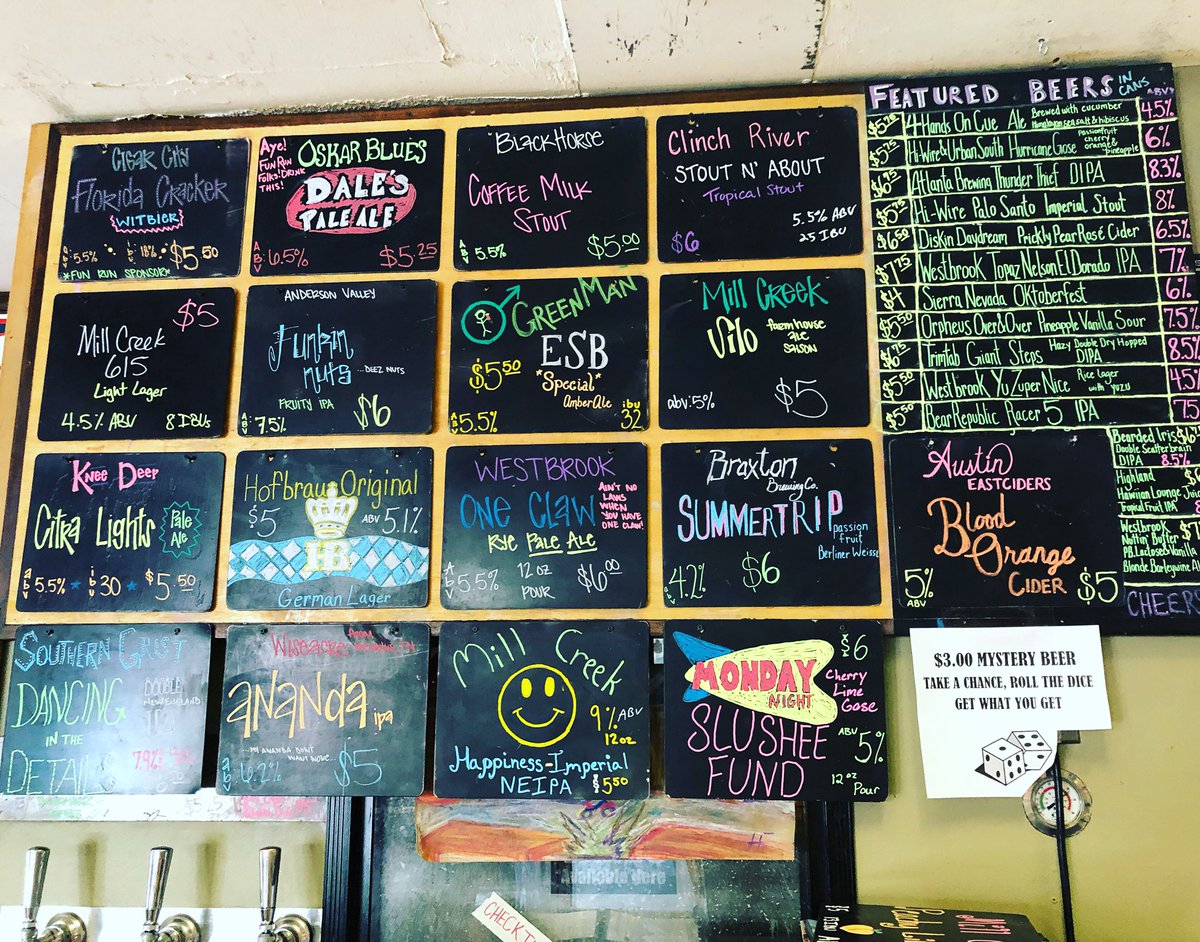 Cigar City
Florida Cracker
WITBIER
abv: 5.5% ibu: 18% $5.50
*FUN RUN SPONSOR*
Aye!
FUN RUN
FOLKS! DRINK
THIS!
OSKAR BLUES
DALE'S
PALE ALE
ABV 6.5% $5.25
BLACKHORSE
COFFEE MILK
STOUT
ABV 5.5% $5.00
Clinch River
STOUT N' ABOUT
Tropical Stout
5.5% ABV
25 IBU
$6
$5
Mill Creek
615
Light Lager
4.5% ABV 8 IBUs
ANDERSON VALLEY
Junkin
nuts
...DEEZ NUTS
FRUITY IPA
ABV 7.5% $6
GREEN MAN
ESB
*Special*
Amber Ale
$5.50
ABV 5.5% ibu 32
Mill Creek
Silo
farmhouse
ale
SAISON
abv: 5% $5
KNEE DEEP
Citra Lights
Pale
Ale
ABV 5.5% * ibu 30 * $5.50
Hofbrau Original
$5 ABV 5.1%
HB
German Lager
WESTBROOK
ONE CLAW
AIN'T NO
LAWS
WHEN
YOU HAVE
ONE CLAW!
RYE PALE ALE
ABV 5.5% 12 oz POUR $6.00
Braxton
Brewing Co.
SUMMERTRIP
passion
fruit
Berliner Weisse
4.2% ABV $6
SOUTHERN GRIST
DANCING
IN THE
DETAILS
DOUBLE
NEW ENGLAND
7.9%
WISEACRE FROM
ANANDA ipa
...MY ANANDA DON'T
WANT NONE...
abv 6.2% $5
Mill Creek
9% ABV
12oz
Happiness-Imperial
NEIPA $5.50
MONDAY
NIGHT
$6
Cherry
Lime
Gose
SLUSHEE
FUND
ABV 5%
12oz
Pour
FEATURED BEERS IN CANS ABV%
$5.75 4 Hands On Cue Ale Brewed with cucumber Himalayan sea salt & hibiscus 4.5%
$5.75 Hi-Wire & Urban South Hurricane Gose passionfruit cherry orange & pineapple 6%
$6.75 Atlanta Brewing Thunder Thief DIPA 8.3%
$5.75 Hi-Wire Palo Santo Imperial Stout 8%
$6.50 Diskin Daydream Prickly Pear Rosé Cider 6.5%
$7.25 Westbrook Topaz Nelson El Dorado IPA 7%
$4 Sierra Nevada Oktoberfest 6%
$5.50 Orpheus Over & Over Pineapple Vanilla Sour 7.5%
$6.75 Trimtab Giant Steps Hazy Double Dry Hopped DIPA 8.5%
$5.50 Westbrook Yu Zuper Nice Rice Lager with yuzu 4.5%
$5.50 Bear Republic Racer 5 IPA 7.5
Austin
EASTCIDERS
Blood
Orange
CIDER
5% ABV $5
Bearded Iris
Double Scatterbrain
DIPA 8.5%
Highland
Hawaiian Lounge
Tropical Fruit IPA
Westbrook
Nuttin' Butter
P.B. Lactose & Vanilla
Blonde Barleywine
CHEERS
$3.00 MYSTERY BEER
TAKE A CHANCE, ROLL THE DICE
GET WHAT YOU GET
Available Here
CHECK